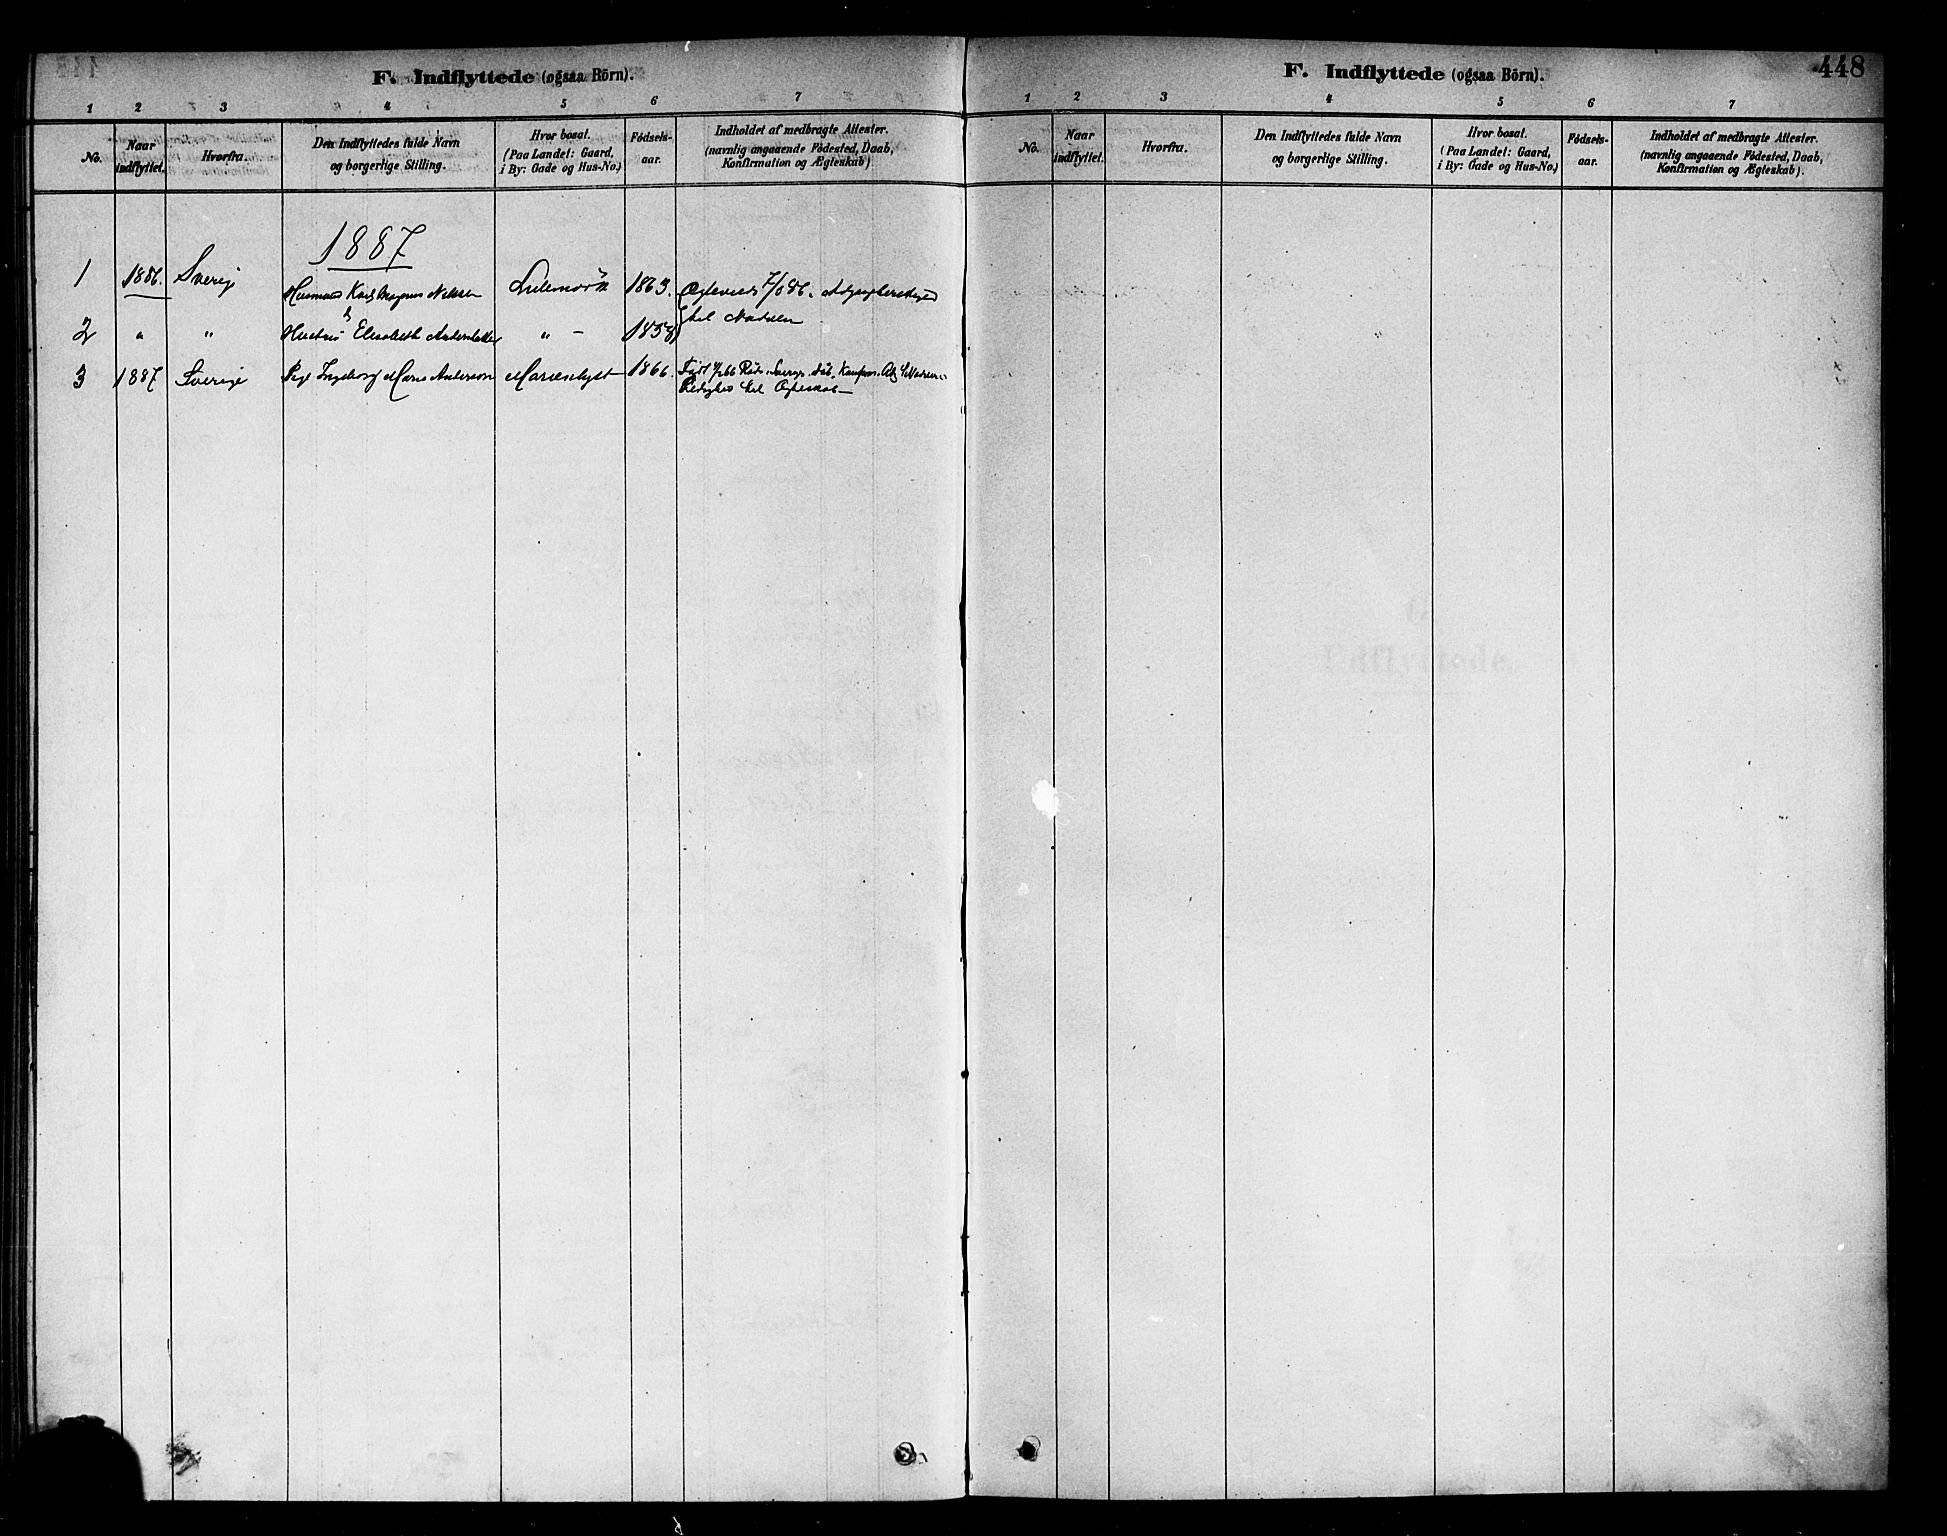 F. Indflyttede (ogsaa Börn).
1 2 3 4 5 6 7
No. Naar indflyttet. Hvorfra. Den Indflyttedes fulde Navn og borgerlige Stilling. Hvor bosat. (Paa Landet: Gaard, i By: Gade og Hus-No.) Födsels-aar. Indholdet af medbragte Attester. (navnlig angaaende Födested, Daab, Konfirmation og Ægteskab)
1887
1 1886. Sverige Karl Magnus 1863.
til
2 " " Hustru Elisabeth " — 1858
3 1887 Sverige Pige Ingeborg Marie Anderson Marienlyst 1866. Født
til Ægteskab —
F. Indflyttede (ogsaa Börn).
448
1 2 3 4 5 6 7
No. Naar indflyttet. Hvorfra. Den Indflyttedes fulde Navn og borgerlige Stilling. Hvor bosat. (Paa Landet: Gaard, i By: Gade og Hus-No.) Födsels-aar. Indholdet af medbragte Attester. (navnlig angaaende Födested, Daab, Konfirmation og Ægteskab).